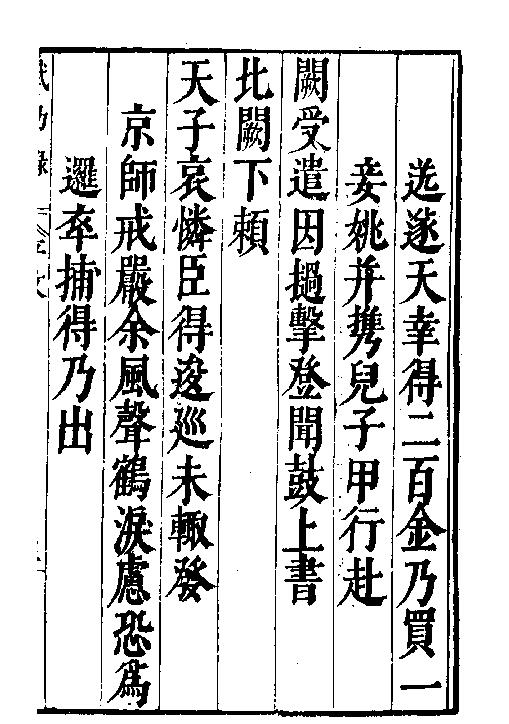 迯遂天幸得二百金乃買一
妾姚并攜兒子甲行赴
闕受遣因撾擊登聞鼓上書
北闕下賴
天子哀憐臣得逡巡未輙發
京師戒嚴余風聲鶴淚慮恐爲
邏卒捕得乃出